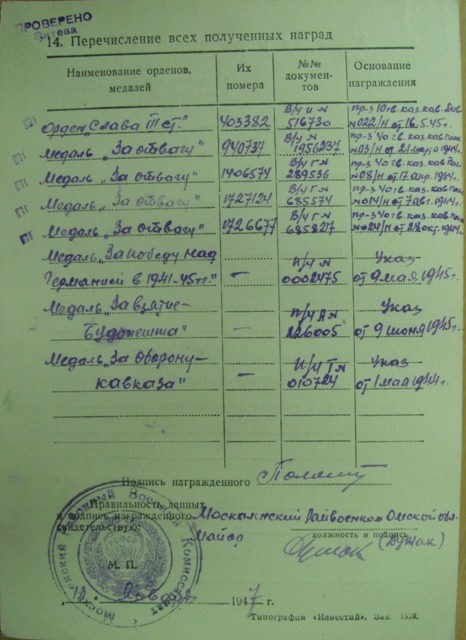 ПРОВЕРЕНО
14. Перечисление всех полученных наград
Наименование орденов, медалей
Их номера
№№ документов
Основание награждения
Орден „Слава III ст." 403382 В/ч и № 516730 пр-з 10 гв. каз. кав. див. №022/н от 16.5.45г.
Медаль „За отвагу" 940737 В/ч № 1956237 пр-з 40 гв. каз. кав. пол. №03/н от 21 марта 1944г.
Медаль „За отвагу" 1406574 В/ч Г № 289536 пр-з 40 гв. каз. кав. пол. №08/н от 17 апр. 1944г.
Медаль „За отвагу" 1727124 В/ч Г № 685574 пр-з 40 гв. каз. кав. пол. №014/н от 7 авг. 1944г.
Медаль „За отвагу" 1726677 В/ч Г № 685827 пр-з 40 гв. каз. кав. полк №024/н от 28 окт. 1944г.
Медаль „За победу над П/ч № Указ
Германией в 1941-45гг." – 0002475 от 9 мая 1945г.
Медаль „За взятие П/ч А № Указ
Будапешта" – 226005 от 9 июня 1945г.
Медаль „За оборону П/ч Т № Указ
Кавказа" – 010724 от 1 мая 1944г.
Подпись награжденного
Правильность данных
и подпись награжденного Москаленский Райвоенком Омской обл.
свидетельствую: Майор (Душак)
должность и подпись
М. П.
1947 г.
Типография «Известий», Зак